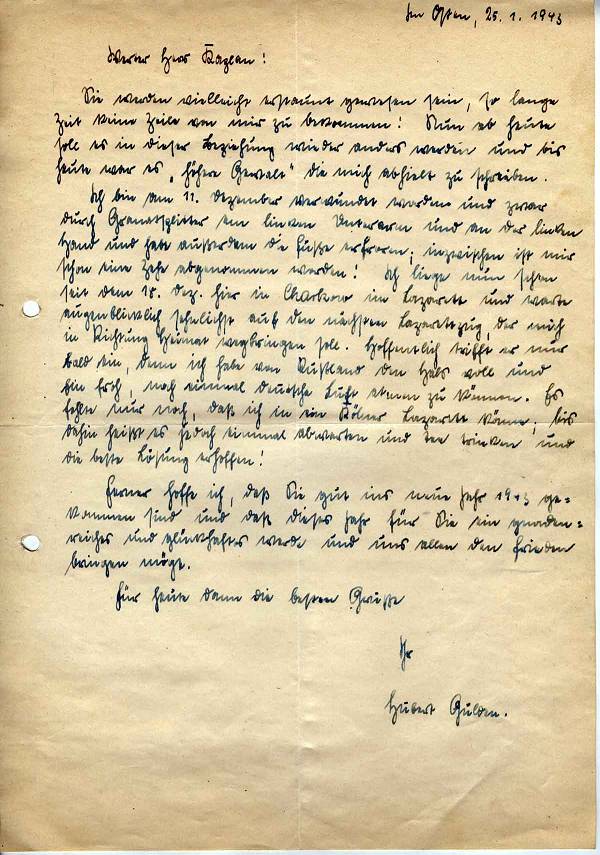 Im Osten, 25. 1. 1943
Werter Herr Kaplan!
Sie werden vielleicht erstaunt gewesen sein, so lange
Zeit keine Zeile von mir zu bekommen! Nun ab heute
soll es in dieser Beziehung wieder anders werden und bis
heute war es „höhere Gewalt" die mich abhielt zu schreiben.
Ich bin am 11. Dezember verwundet worden und zwar
durch Granatsplitter am linken Unterarm und an der linken
Hand und habe außerdem die Füße erfroren; inzwischen ist mir
schon eine Zehe abgenommen worden! Ich liege nun schon
seit dem 18. Dez. hier in Charkow im Lazarett und warte
augenblicklich sehnlichst auf den nächsten Lazarettzug, der mich
in Richtung Heimat wegbringen soll. Hoffentlich trifft er nur
bald ein, denn ich habe von Rußland den Hals voll und
bin froh, noch einmal deutsche Luft atmen zu können. Es
fehlte nur noch, daß ich in ein Kölner Lazarett käme; bis
dahin heißt es jedoch einmal abwarten und Tee trinken und
die beste Lösung erhoffen!
Ferner hoffe ich, daß Sie gut ins neue Jahr 1943 ge=
kommen sind und daß dieses Jahr für Sie ein gnaden=
reiches und glückhaftes werde und uns allen den Frieden
bringen möge.
Für heute dann die besten Grüße
Ihr
Hubert Gülden.